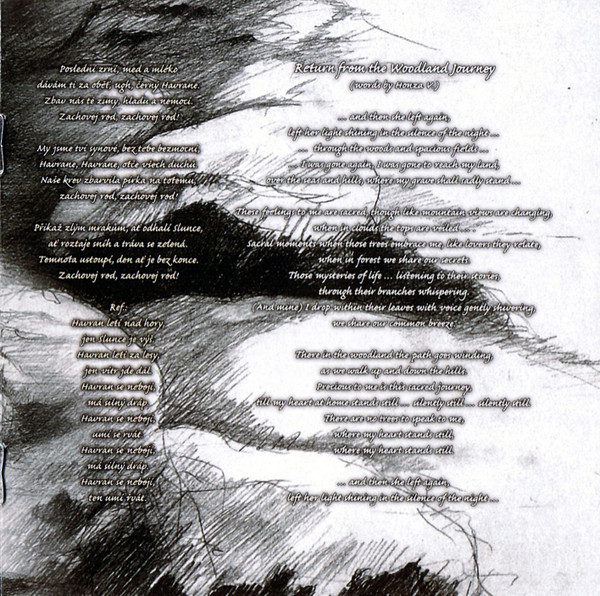 Poslední zrní, med a mléko
dávám ti za oběť, ugh, černý Havrane.
Zbav nás té zimy, hladu a nemocí.
Zachovej rod, zachovej rod!
My jsme tví synové, bez tebe bezmocní,
Havrane, Havrane, otče všech duchů.
Naše krev zbarvila pírka na totemu,
zachovej rod, zachovej rod!
Přikaž zlým mrakům, ať odhalí Slunce,
ať roztaje sníh a tráva se zelená.
Temnota ustoupí, den ať je bez konce.
Zachovej rod, zachovej rod!
Ref.:
Havran letí nad hory,
jen slunce je výš.
Havran letí za lesy,
jen vítr jde dál.
Havran se nebojí,
má silný dráp.
Havran se nebojí,
umí se rvát.
Havran se nebojí,
má silný dráp.
Havran se nebojí,
ten umí řvát.
Return from the Woodland Journey
(words by Honza V.)
... and then she left again,
left her light shining in the silence of the night ...
... through the woods and spacious fields ...
... I was gone again, I was gone to reach my land,
over the seas and hills, where my grave shall sadly stand ...
Those feelings to me are sacred, though like mountain views are changing,
when in clouds the tops are veiled ...
Sacral moments when those trees embrace me, like lovers they relate,
when in forest we share our secrets.
Those mysteries of life ... listening to their stories,
through their branches whispering.
(And mine) I drop within their leaves with voice gently shivering,
we share our common breeze.
There in the woodland the path goes winding,
as we walk up and down the hills.
Precious to me is this sacred journey,
till my heart at home stands still ... silently still ... silently still.
There are no trees to speak to me,
where my heart stands still,
where my heart stands still.
... and then she left again,
left her light shining in the silence of the night ...